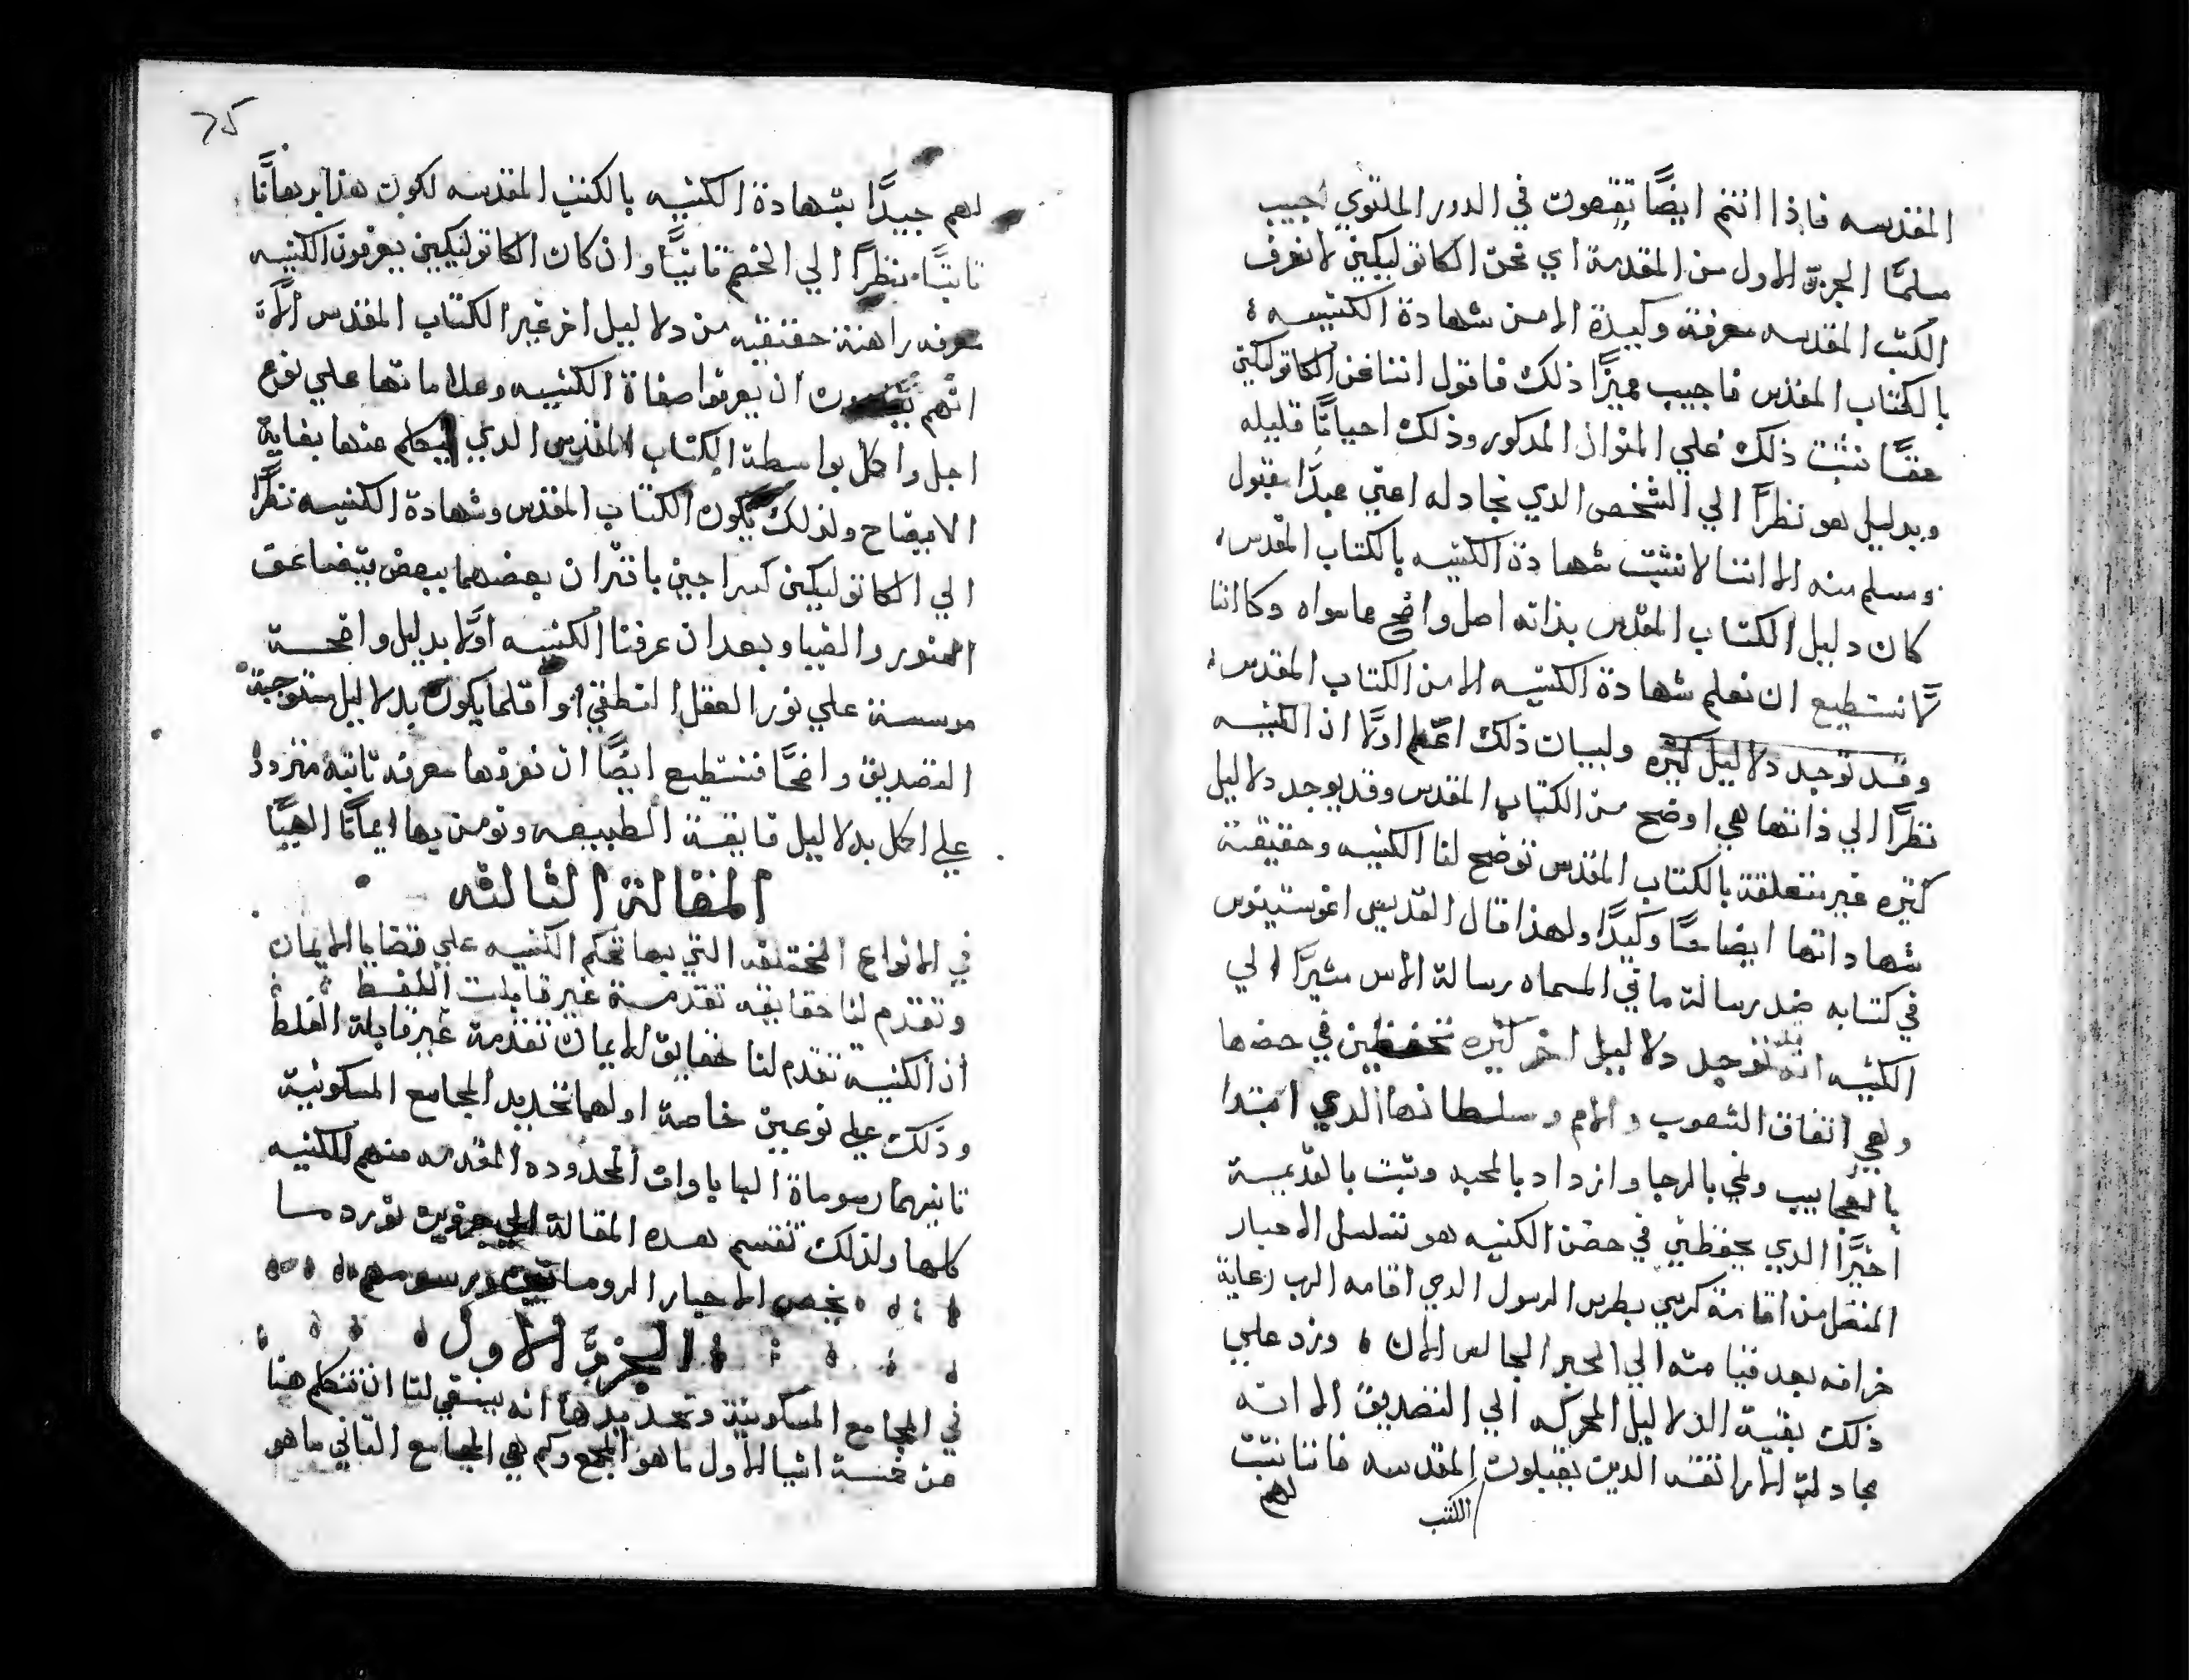 المقدسه فاذا انتم ايضًا تقعون في الدور الملتوي اجيب
مسلمًا الجزؤ الاول من المقدمة اي نحن الكاتوليكيين لا نعرف
الكتب المقدسه معرفة وكيدة الا من شهادة الكنيسه
بالكتاب المقدس فاجيب مميزًا ذلك فاقول اننا نحن الكاتوليكيين
حقًا نثبت ذلك علي المنوال المدكور وذلك احيانًا قليله
وبدليل هو نظرًا الي الشخص الدي نجادله اعني مبدًا مقبول
ومسلم منه الا اننا لا نثبت شهادة الكنيسه بالكتاب المقدس
كان دليل الكتاب المقدس بذاته اصل واضح ماسواه وكاننا
لا نستطيع ان نعلم شهادة الكنيسه الا من الكتاب المقدس
وقد توجد دلاليل كثيره ولبيان ذلك اعلم اولًا ان الكنيسه
نظرًا الي ذاتها هي اوضح من الكتاب المقدس وقد يوجد دلاليل
كثيره غير متعلقة بالكتاب المقدس توضح لنا الكنيسه وحقيقة
شهاداتها ايضاحًا وكيدًا ولهذا قال القديس اغوستينوس
في كتابه ضد رسالة ماني المسماه رسالة الاس مشيرًا الي
الكنيسه انه توجد دلاليل اخر كثيره تحفظني في حضنها
وهي اتفاق الشعوب والامم وسلطانها الدي ابتدا
بالعجايب ونمي بالرجا وازداد بالمحبه وثبت بالقديمية
اخيرًا الدي يحفظني في حضن الكنيسه هو تسلسل الاحبار
المتصل من اقامة كرسي بطرس الرسول الدي اقامه الرب رعاية
خرافه بعد قيامته الي الحبر الجالس الان وزد علي
ذلك بقية الدلاليل المحركه الي التصديق الا انه
مجادلة الاراتقه الدين يقبلون الكتب المقدسه فاننا نثبت
لهم
لهم جيدًا بشهادة الكنيسه بالكتب المقدسه لكون هذا برهانًا
ثابتًا نظرًا الي الخصم ثانيًا وان كان الكاتوليكيين يعرفون الكنيسه
معرفه راهنة حقيقيه من دلاليل اخر غير الكتاب المقدس الا
انهم ان يعرفوا صفاة الكنيسه وعلاماتها علي نوع
اجل واكمل بواسطة الكتاب المقدس الدي يتكلم عنها بغاية
الايضاح ولذلك يكون الكتاب المقدس وشهادة الكنيسه نظرًا
الي الكاتوليكيين كسراجين باقتران بعضهما ببعض يتضاعف
النور والضيا وبعد ان عرفنا الكنيسه اولًا بدليل واضحة
موسسة علي نور العقل النطقي واقلما يكون بدلاليل مستوجبة
التصديق واضحًا فنستطيع ايضًا ان نعرفها معرفه ثانية
علي اكمل بدلاليل فايقة الطبيعه ونومن بها ايمانًا الهيًا
المقالة الثالثه
في الانواع المختلفه التي بها تحكم الكنيسه علي قضايا الايمان
وتقدم لنا حقايقه تقدمة غير قابلت الغلط
ان الكنيسه تقدم لنا حقايق الايمان تقدمة غير قابلة الغلط
وذلك علي نوعين خاصة اولهما تحديد المجامع المسكونية
ثانيهما رسوماة الباباوات المحدوده المقدمه منهم للكنيسه
كلها ولذلك تقسم هده المقالة الي جزوين نورد ما
يخص الاحبار الرومانيين ورسومهم
الجزؤ الاول
في المجامع المسكونية وتحديدها انه ينبغي لنا ان نتكلم هنا
عن خمسة اشيا الاول ما هو المجمع وكم هي المجامع الثاني ما هو